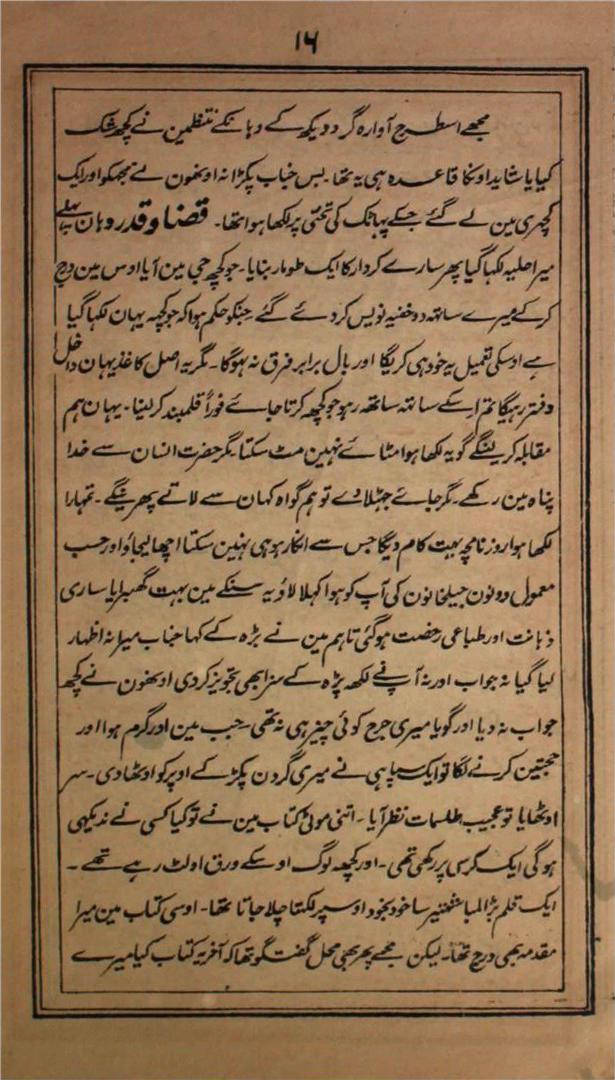 ۱۶
مجھے اسطرح آوارہ گرد دیکھ کے وہانکے منتظمین نے کچھ شک
کیا یا شاید اونکا قاعدہ ہی یہ تھا۔ بس جناب پکڑا نہ اونھون نے مجھکو اور ایک
کچہری مین لے گئے جسکے پھاٹک کی تختی پر لکھا ہوا تھا۔ قضا و قدر وہان پہلے
میرا حلیہ لکہا گیا پھر سارے کردار کا ایک طومار بنایا۔ جو کچھ جی مین آیا اوس مین درج
کر کے میرے ساتھ دو خفیہ نویس کر دئے گئے جنکو حکم ہوا کہ جو کچہہ یہان لکہا گیا
ہے اوسکی تعمیل یہ خود ہی کریگا اور بال برابر فرق نہ ہوگا۔ مگر یہ اصل کاغذ یہان داخل
دفتر رہیگا تم اسکے ساتھ ساتھ رہو جو کچھ کرتا جائے فوراً قلمبند کر لینا۔ یہان ہم
مقابلہ کر لینگے گو یہ لکھا ہوا مٹائے نہین مٹ سکتا مگر حضرت انسان سے خدا
پناہ مین رکھے۔ مکر جائے جہٹلا دے تو ہم گواہ کہان سے لاتے پھرینگے۔ تمہارا
لکھا ہوا روزنامچہ بہت کام دیگا جس سے انکار ہو ہی نہین سکتا اچھا لیجاؤ اور حسب
معمول دونون جیلخانون کی آپ کو ہوا کہلا لاؤ یہ سنکے مین بہت گھبرایا ساری
ذہانت اور طباعی رخصت ہو گئی تاہم مین نے بڑہ کے کہا جناب میرا نہ اظہار
لیا گیا نہ جواب اور نہ آپنے لکھ پڑہ کے سزا بھی تجویز کر دی اونھون نے کچھ
جواب نہ دیا اور گویا میری جرح کوئی چیز ہی نہ تھی۔ جب مین اور گرم ہوا اور
حجتین کرنے لگا تو ایک سپاہی نے میری گردن پکڑ کے اوپر کو اوٹھا دی۔ سر
اوٹھایا تو عجیب طلسمات نظر آیا۔ اتنی موٹی کتاب مین نے تو کیا کسی نے ندیکہی
ہوگی ایک کرسی پر رکھی تھی۔ اور کچھہ لوگ اوسکے ورق اولٹ رہے تھے۔
ایک قلم بڑا لمبا شمشیر سا خود بخود اوسپر لکہتا چلا جاتا تھا۔ اوسی کتاب مین میرا
مقدمہ بھی درج تھا۔ لیکن مجھے پھر بھی محل گفتگو تھا کہ آخر یہ کتاب کیا میرے